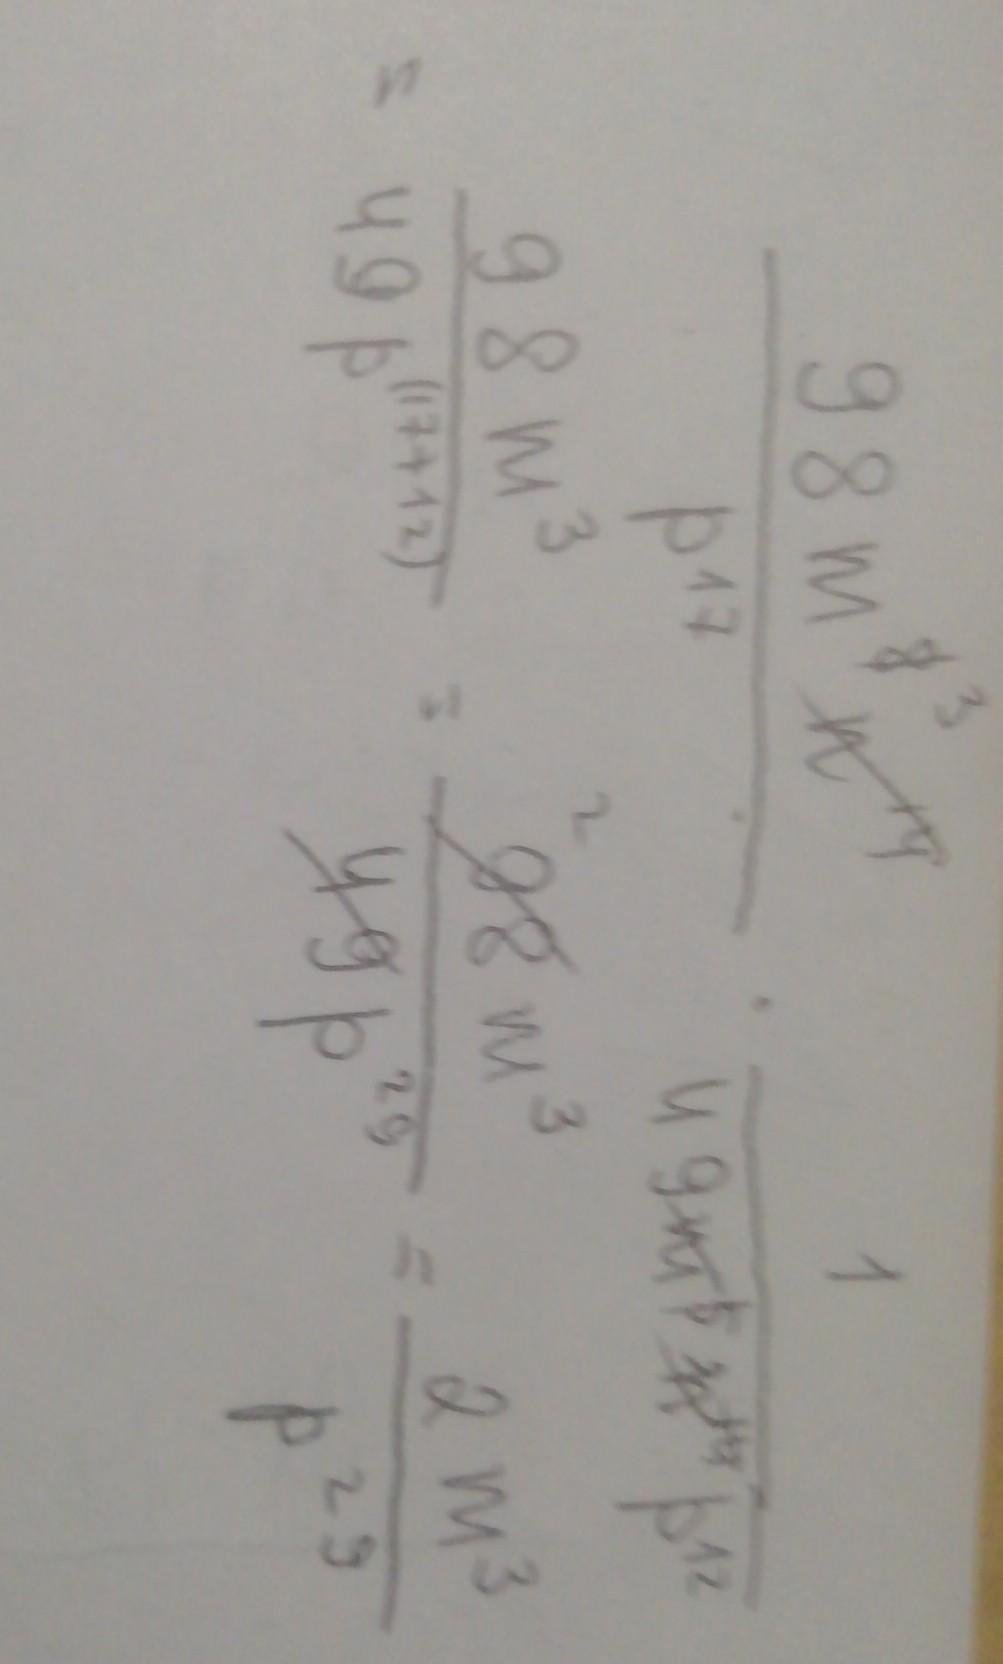 98 m^8 3 n^14 / p^17 · 1 / 49 m^5 n^14 p^12
= 98 m^3 / 49 p^(17+12) = 2 98 m^3 / 49 p^29 = 2 m^3 / p^29